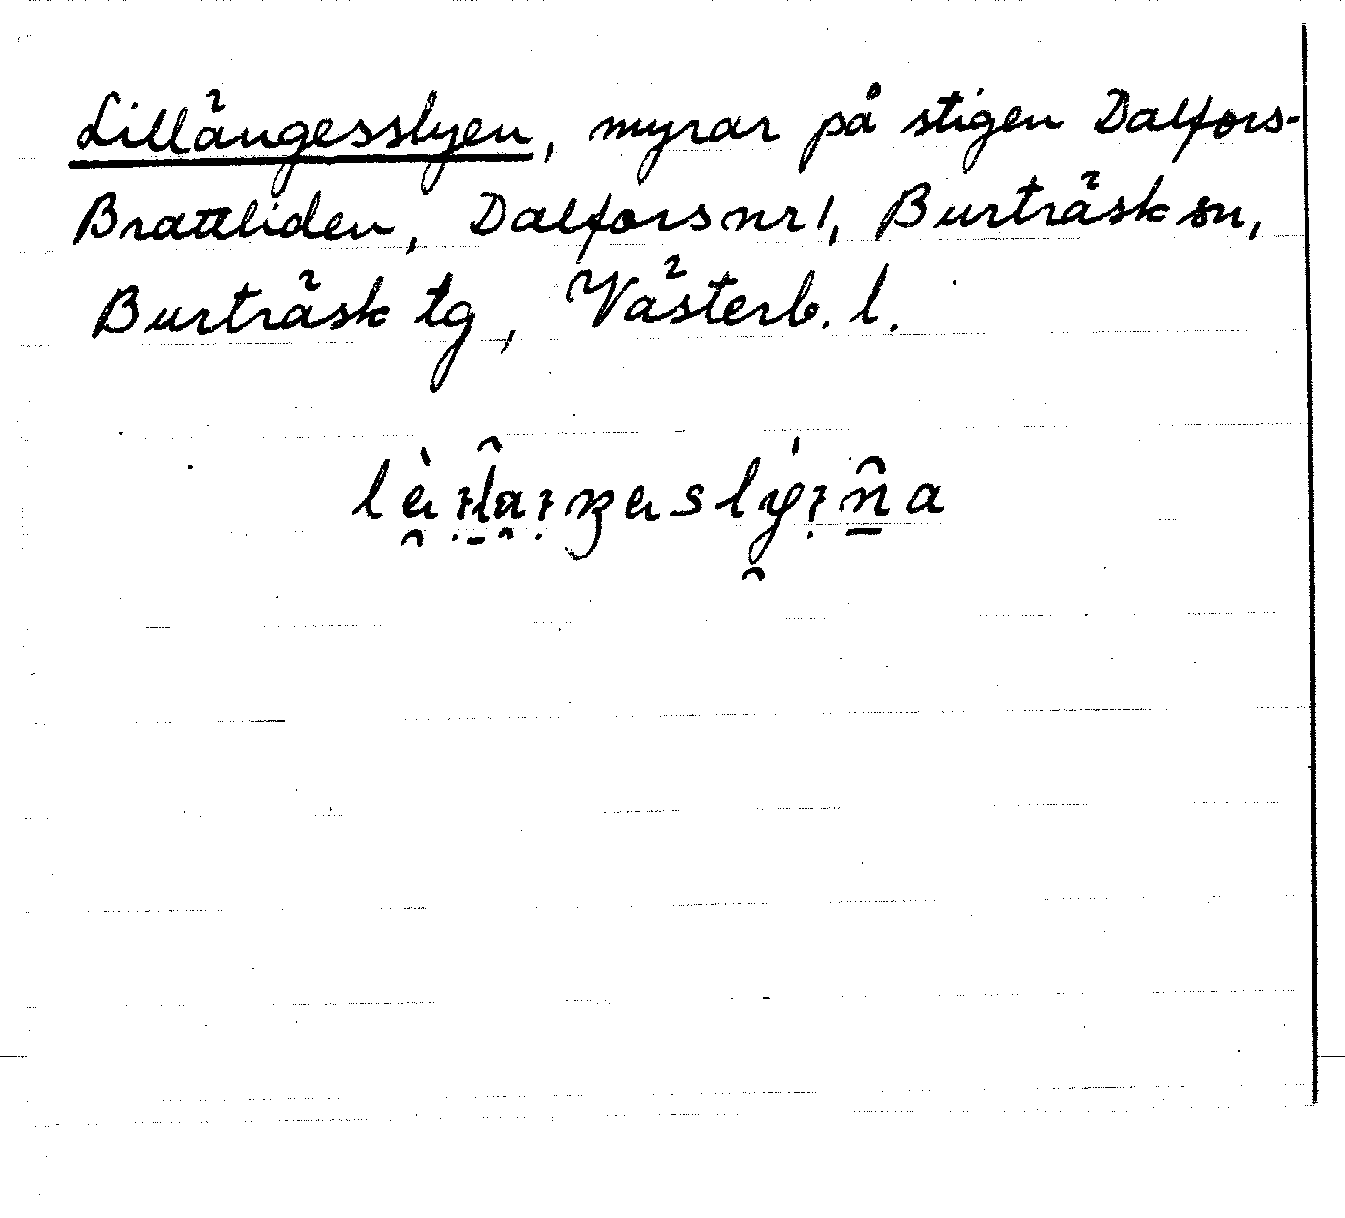 Lillängesslyen, myrar på stigen Dalfors-
Brattliden, Dalfors nr 1, Burträsk sn,
Burträsk tg, Västerb. l.